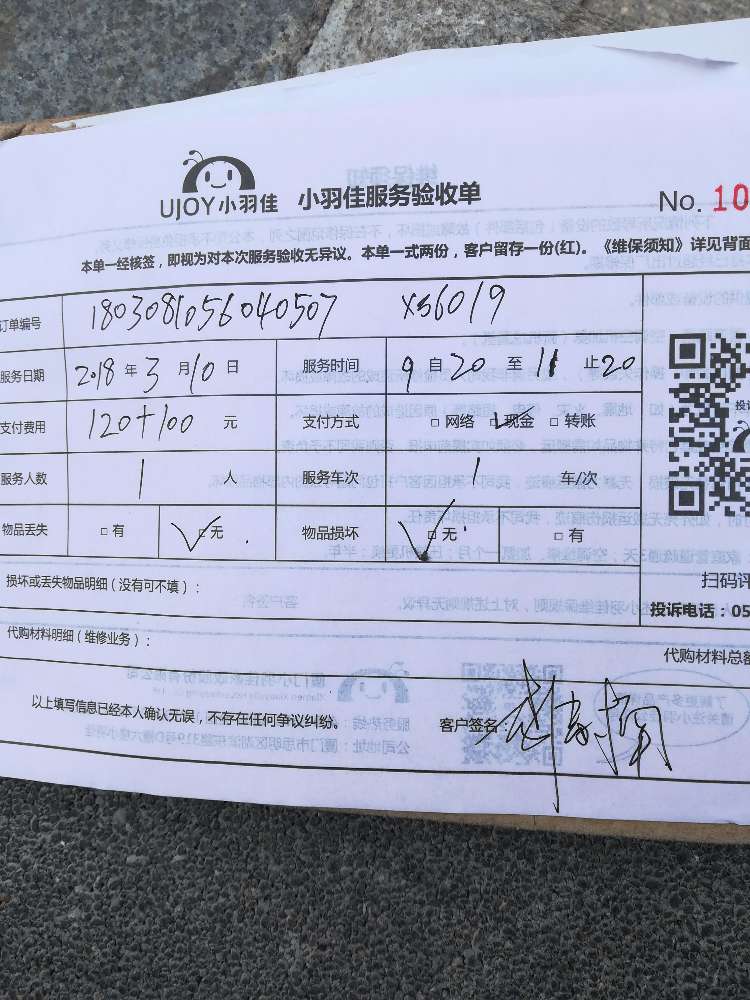 UJOY小羽佳 小羽佳服务验收单 No. 10
本单一经核签，即视为对本次服务验收无异议。本单一式两份，客户留存一份(红)。《维保须知》详见背面
订单编号 1803081056040507 XS6019
服务日期 2018 年 3 月 10 日 服务时间 9 自 20 至 11 止 20
支付费用 120+100 元 支付方式 □ 网络 ☑ 现金 □ 转账
服务人数 1 人 服务车次 1 车/次
物品丢失 □ 有 ☑ 无 物品损坏 ☑ 无 □ 有
损坏或丢失物品明细（没有可不填）：
扫码评
投诉电话：05
代购材料明细（维修业务）：
代购材料总额
以上填写信息已经本人确认无误，不存在任何争议纠纷。 客户签名：